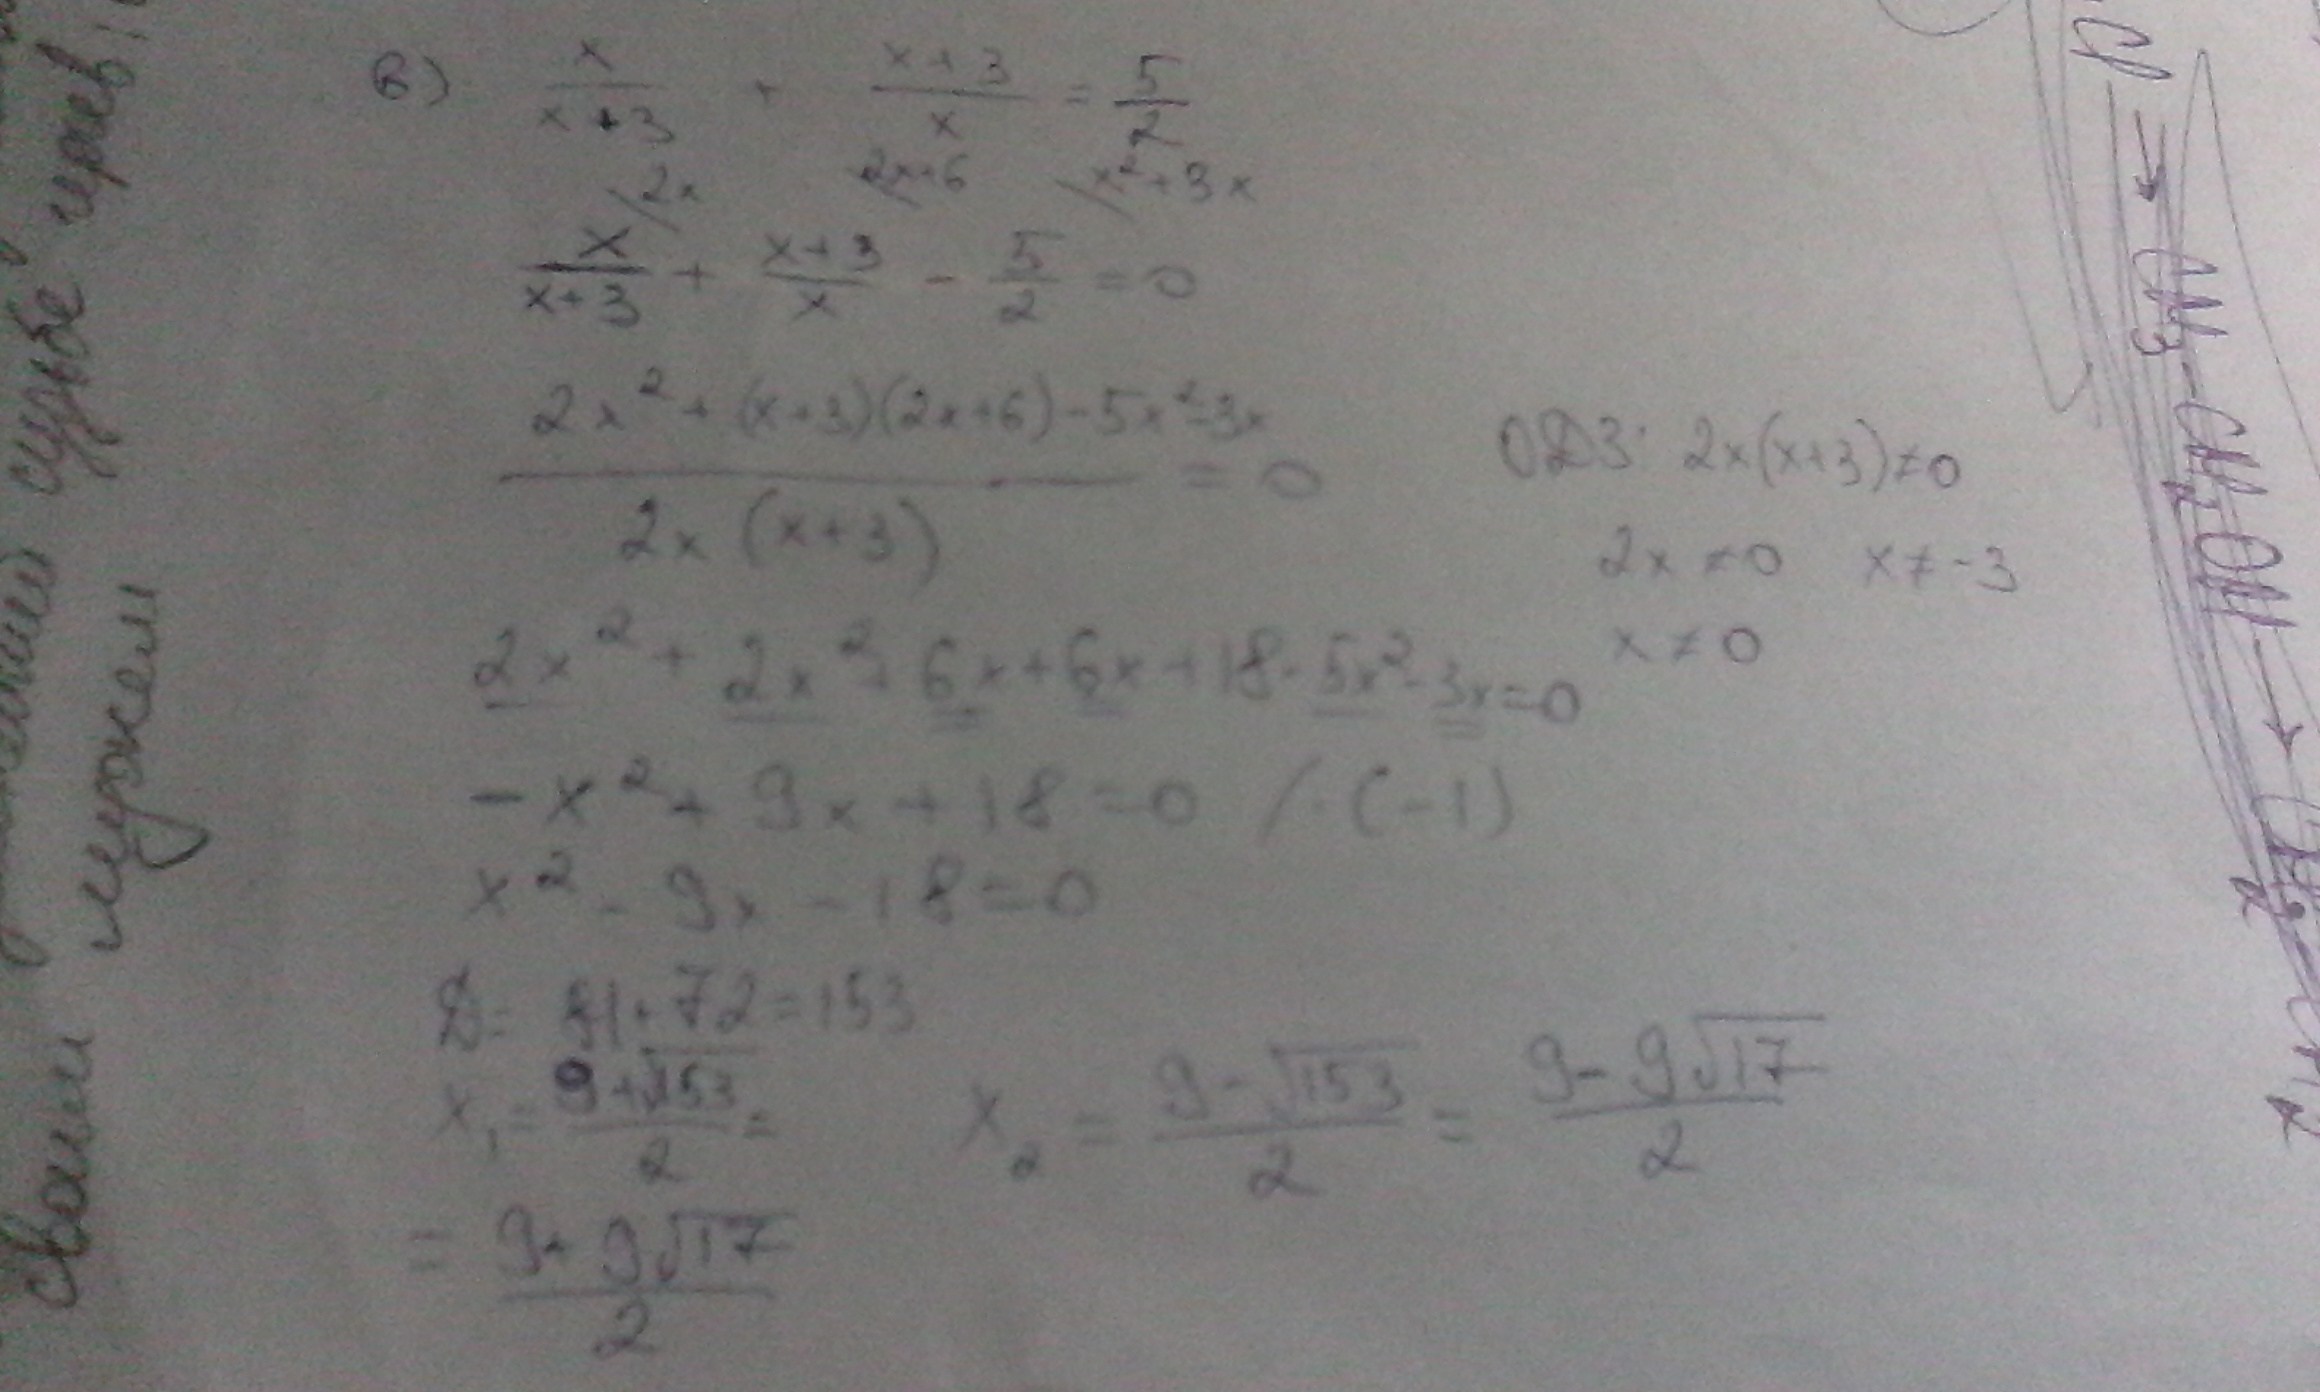 в) x/(x+3) + (x+3)/x = 5/2
/2x 2x+6 x²+3x
x/(x+3) + (x+3)/x - 5/2 = 0
(2x² + (x+3)(2x+6) - 5x² - 3x)/(2x(x+3)) = 0
ОДЗ: 2x(x+3)≠0
2x≠0 x≠-3
x≠0
2x² + 2x² + 6x + 6x + 18 - 5x² - 3x = 0
-x² + 9x + 18 = 0 /·(-1)
x² - 9x - 18 = 0
D = 81+72=153
x₁ = (9+√153)/2 =
x₂ = (9-√153)/2 = (9-9√17)/2
= (9+9√17)/2
судьбе героев,
своим мужем
→ CH₃-CH₂OH →